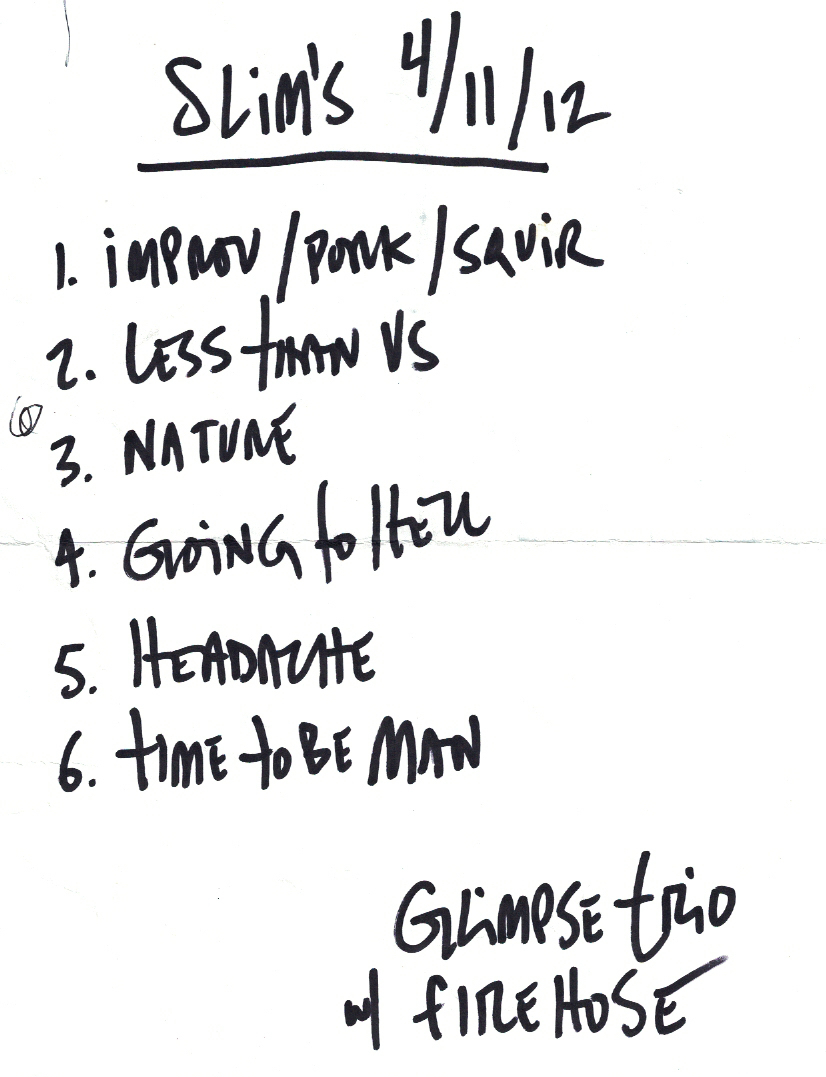 SLiM'S 4/11/12
1. iMPROV / PORK / SQUIR
2. LESS tHAN VS
3. NATURE
4. GOiNG to HELL
5. HEADACHE
6. tiME to BE MAN
GLiMPSE tRiO
w/ fIREHOSE